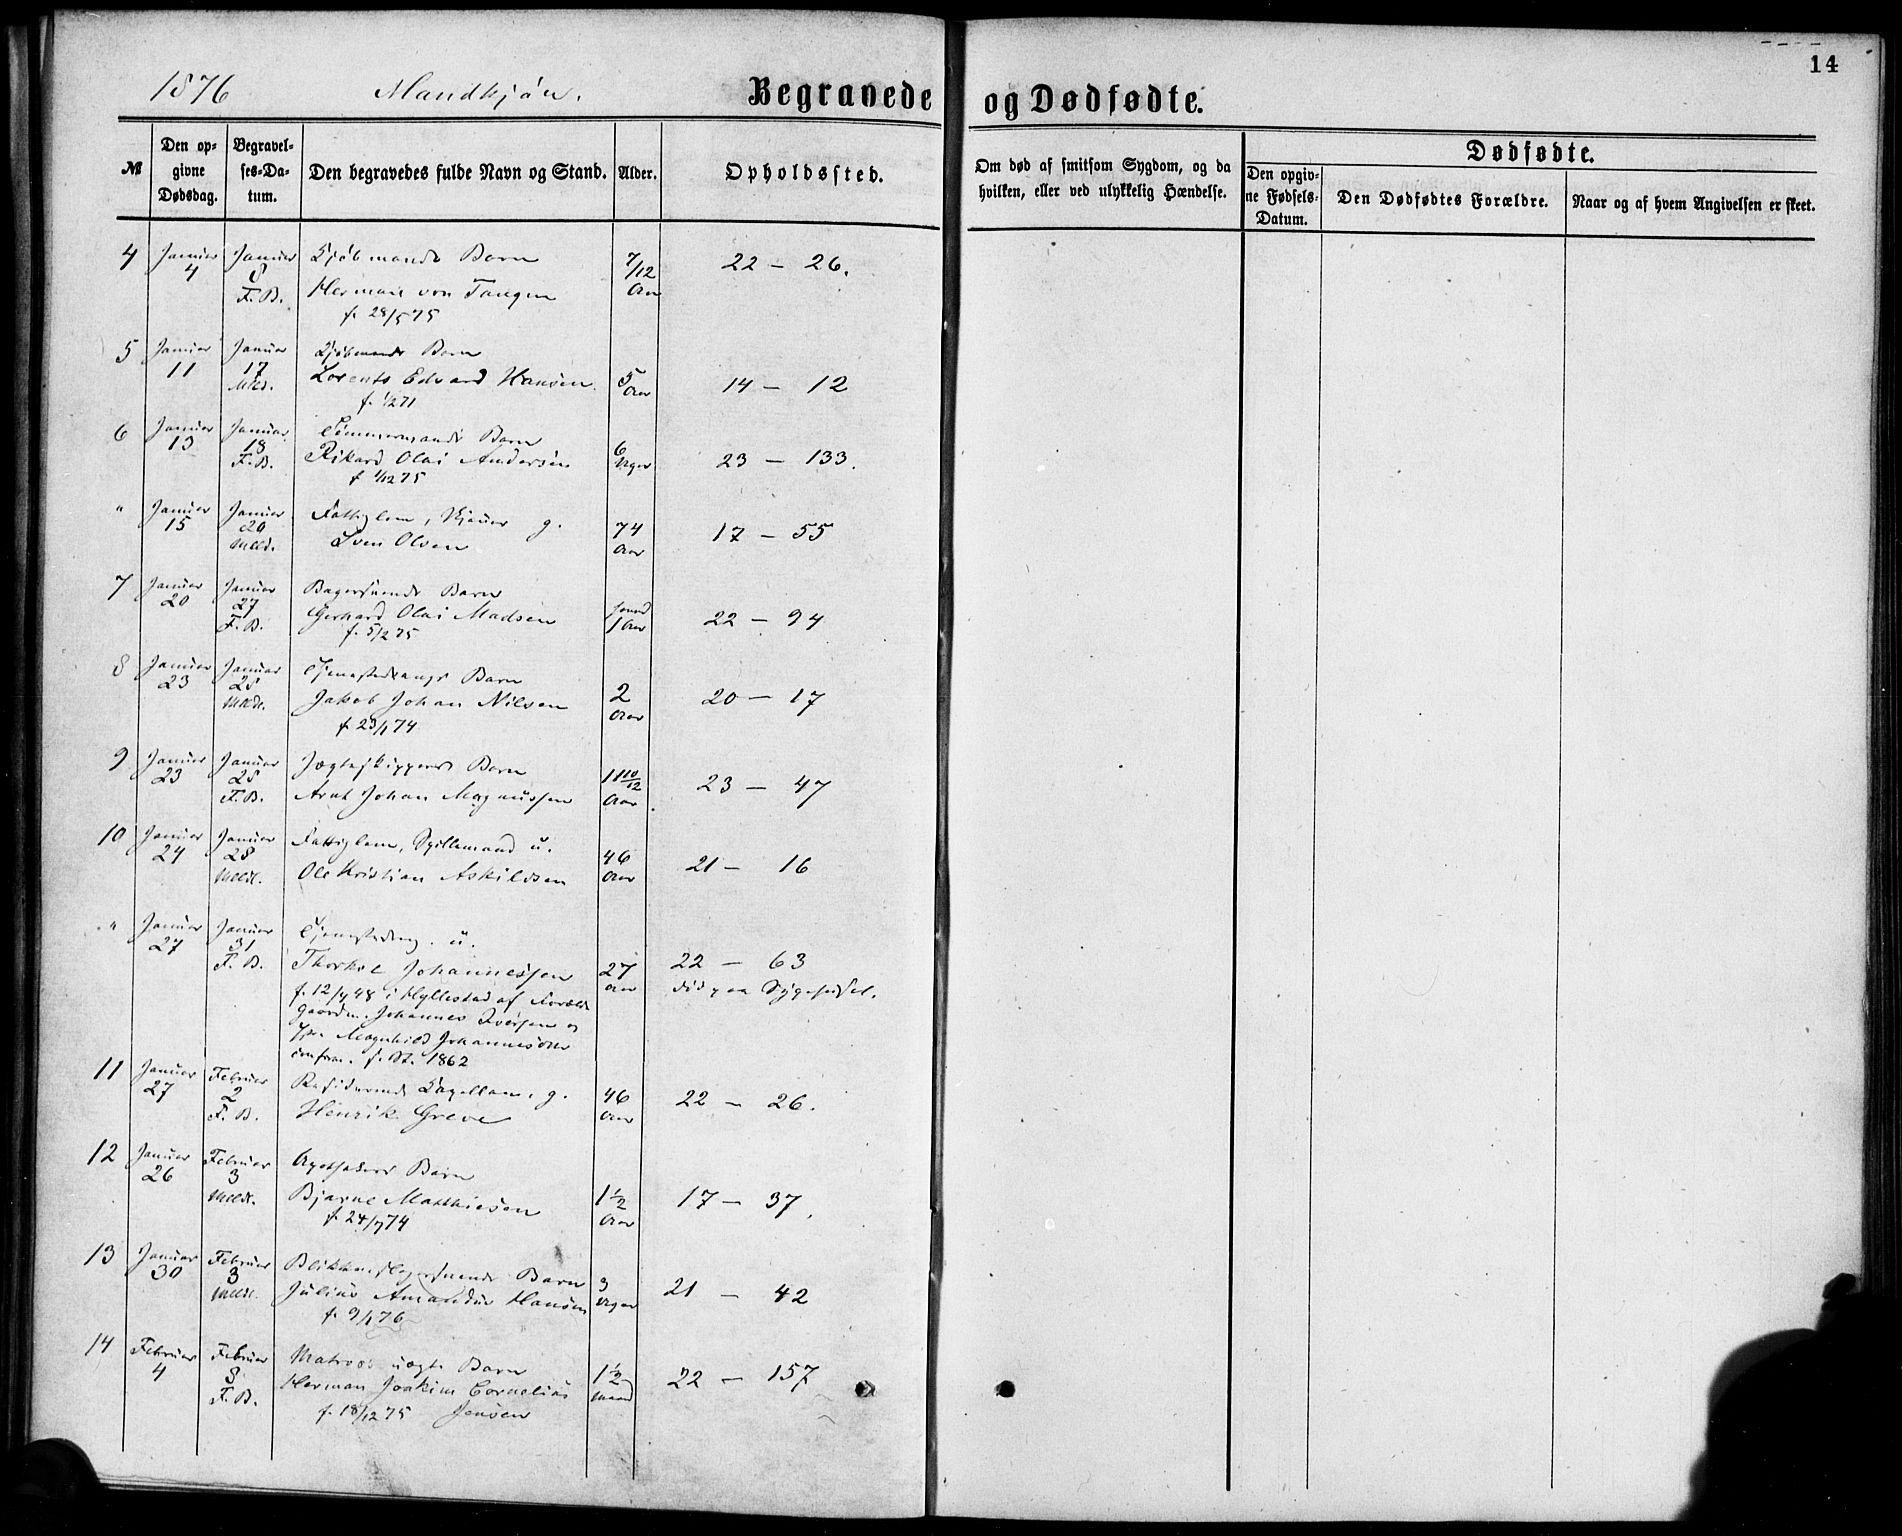 14
1876 Mandkjøn. Begravede og Dødfødte.
№ Den opgivne Dødsdag. Begravelses-Datum. Den begravedes fulde Navn og Stand. Alder. Opholdssted. Om død af smitsom Sygdom, og da hvilken, eller ved ulykkelig Hændelse. Dødfødte.
Den opgivne Fødsels-Datum. Den Dødfødtes Forældre. Naar og af hvem Angivelsen er skeet.
4 Januar Januar Kjøbmands Barn 7/12 22 – 26.
4 8
F. B. Herman von Tangen Aar
f. 28/5 75
5 Januar Januar Kjøbmands Barn
11 17 Lorents Edvard Hansen 5 14 – 12
Meld. Aar
f. 1/2 71
6 Januar Januar Tømmermands Barn
13 18 Rikard Olai Andersen 6 23 – 133.
F. B. Uger
f 1/12 75
" Januar Januar Fattiglem, g. 74 17 – 55
15 20
Meld. Sven Olsen Aar
7 Januar Januar Bagersvends Barn
20 27 Gerhard Olai Madsen 1 Aar 22 – 94
F. B. f. 5/2 75
8 Januar Januar Tjenestedrengs Barn
23 25 Jakob Johan Nilsen 2 20 – 17
Meld. Aar
f. 23/1 74
9 Januar Januar Jægteskippers Barn 11 10/12 23 – 47
23 25
F. B. Arnt Johan Magnussen Aar
10 Januar Januar Fattiglem, Spillemand u. 46 21 – 16
24 28
Meld. Ole Kristian Askildsen Aar
" Januar Januar Tjenestedreng. u.
27 31
F. B. Thorkel Johannessen 27 22 – 63
f. 12/4 48 i Hyllestad af Foræld. Aar død paa Sygehuset.
Gaardm. Johannes Iversen og
Magnhild Johannesdtr
confirm. s. St. 1862
11 Januar Februar Residerende Capellan, g. 46 22 – 26.
27 2
F. B. Henrik Greve Aar
12 Januar Februar Apothekers Barn
26 3
Meld. Bjarne Matthiesen 1½ 17 – 37.
f. 24/7 74 Aar
13 Januar Februar Blikkenslagersvends Barn 3 21 – 42
30 3
Meld. Julius Amandus Hansen Uger
f. 9/1 76
14 Februar Februar Matros uægte Barn 1½ 22 – 157
4 8 Herman Joakim Cornelius Maaned
F. B. f. 18/12 75 Jensen